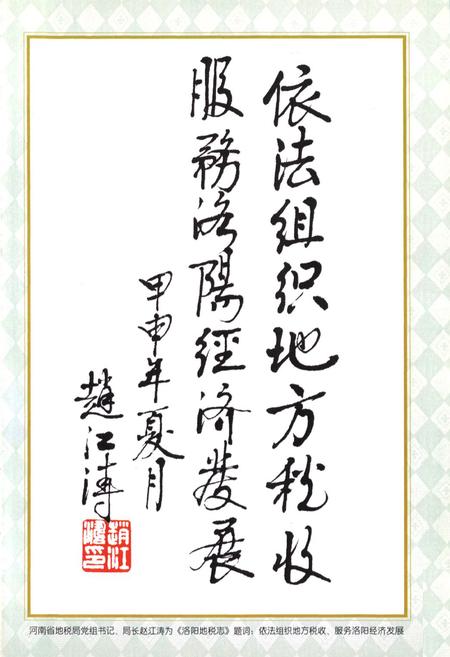 依法组织地方税收
服務洛陽經济發展
甲申年夏月
趙江涛
趙江
濤印
河南省地税局党组书记、局长赵江涛为《洛阳地税志》题词：依法组织地方税收、服务洛阳经济发展